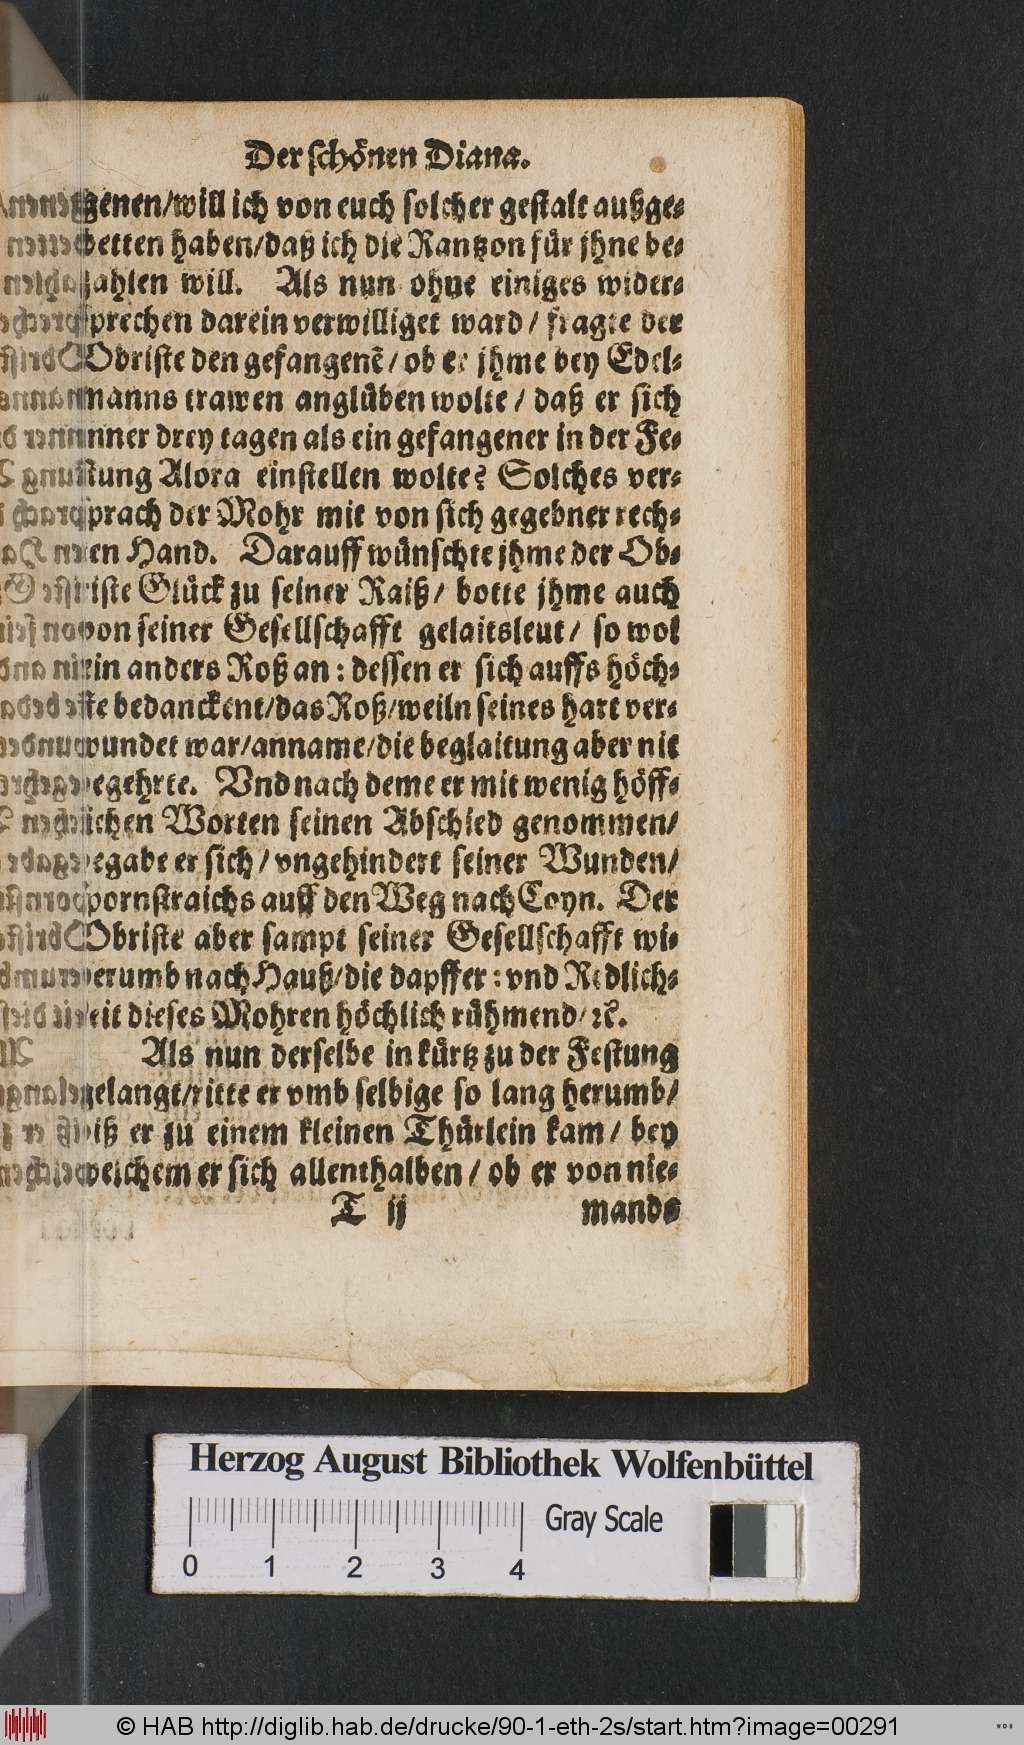 Der schönen Diana.
genen/will ich von euch solcher gestalt außge-
betten haben/daß ich die Rantzon für jhne be-
zahlen will. Als nun ohne einiges wider-
sprechen darein verwilliget ward / fragte der
Obriste den gefangenẽ / ob er jhme bey Edel-
manns trawen anglüben wolte / daß er sich
inner drey tagen als ein gefangener in der Fe-
stung Alora einstellen wolte? Solches ver-
sprach der Mohr mit von sich gegebner rech-
ten Hand. Darauff wünschte jhme der Ob-
riste Glück zu seiner Raiß / botte jhme auch
von seiner Gesellschafft gelaitsleut / so wol
ein anders Roß an : dessen er sich auffs höch-
ste bedanckent/das Roß/weiln seines hart ver-
wundet war/anname/die beglaitung aber nit
begehrte. Vnd nach deme er mit wenig höff-
lichen Worten seinen Abschied genommen/
begabe er sich / vngehindert seiner Wunden/
spornstraichs auff den Weg nach Coyn. Der
Obriste aber sampt seiner Gesellschafft wi-
derumb nach Hauß/die dapffer : vnd Redlich-
keit dieses Mohren höchlich rühmend/ ꝛc.
Als nun derselbe in kürtz zu der Festung
gelangt/ritte er vmb selbige so lang herumb/
biß er zu einem kleinen Thürlein kam / bey
welchem er sich allenthalben / ob er von nie-
T ij mands
Herzog August Bibliothek Wolfenbüttel
Gray Scale
0 1 2 3 4
© HAB http://diglib.hab.de/drucke/90-1-eth-2s/start.htm?image=00291